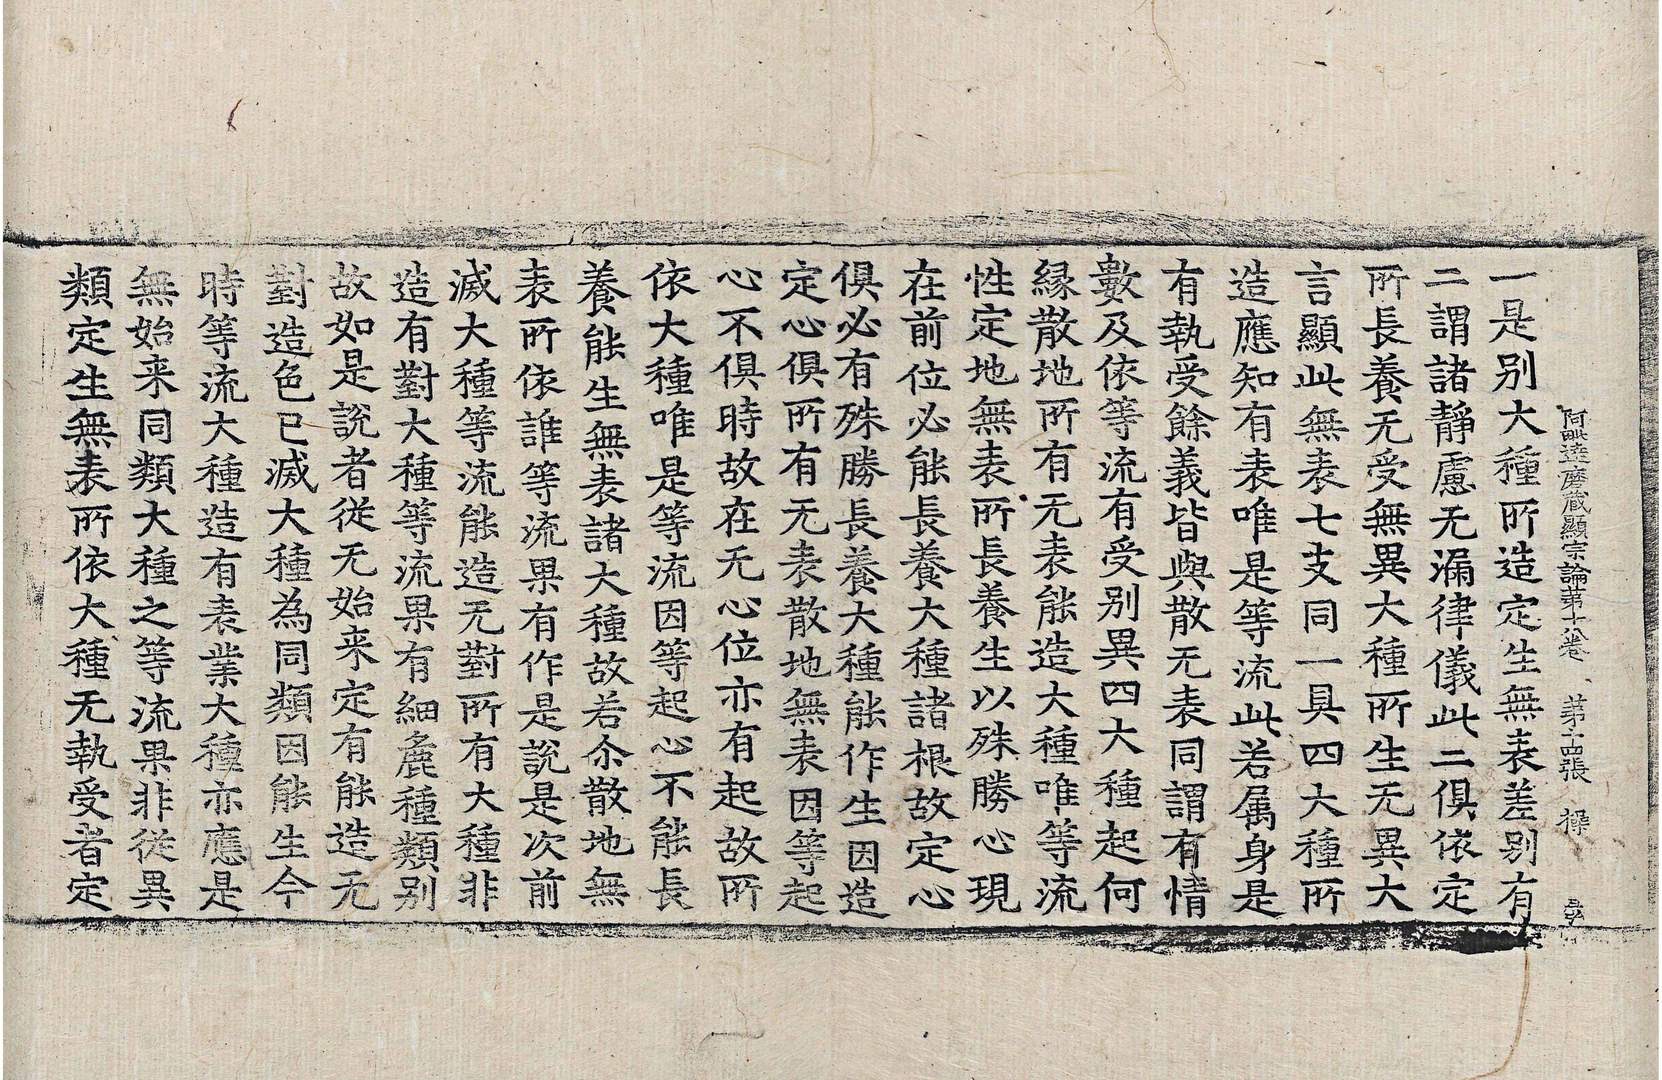 阿毗達磨蔵顯宗論第十卷 第十四張 操
一是別大種所造定生無表差別有
二謂諸靜慮无漏律儀此二俱依定
所長養无受無異大種所生无異大
言顯此無表七支同一具四大種所
造應知有表唯是等流此若属身是
有執受餘義皆與散无表同謂有情
數及依等流有受別異四大種起何
縁散地所有无表能造大種唯等流
性定地無表所長養生以殊勝心現
在前位必能長養大種諸根故定心
俱必有殊勝長養大種能作生因造
定心俱所有无表散地無表因等起
心不俱時故在无心位亦有起故所
依大種唯是等流因等起心不能長
養能生無表諸大種故若尒散地無
表所依誰等流果有作是說是次前
滅大種等流能造无對所有大種非
造有對大種等流果有細麁種類別
故如是說者從无始来定有能造无
對造色已滅大種為同類因能生今
時等流大種造有表業大種亦應是
無始来同類大種之等流果非從異
類定生無表所依大種无執受者定